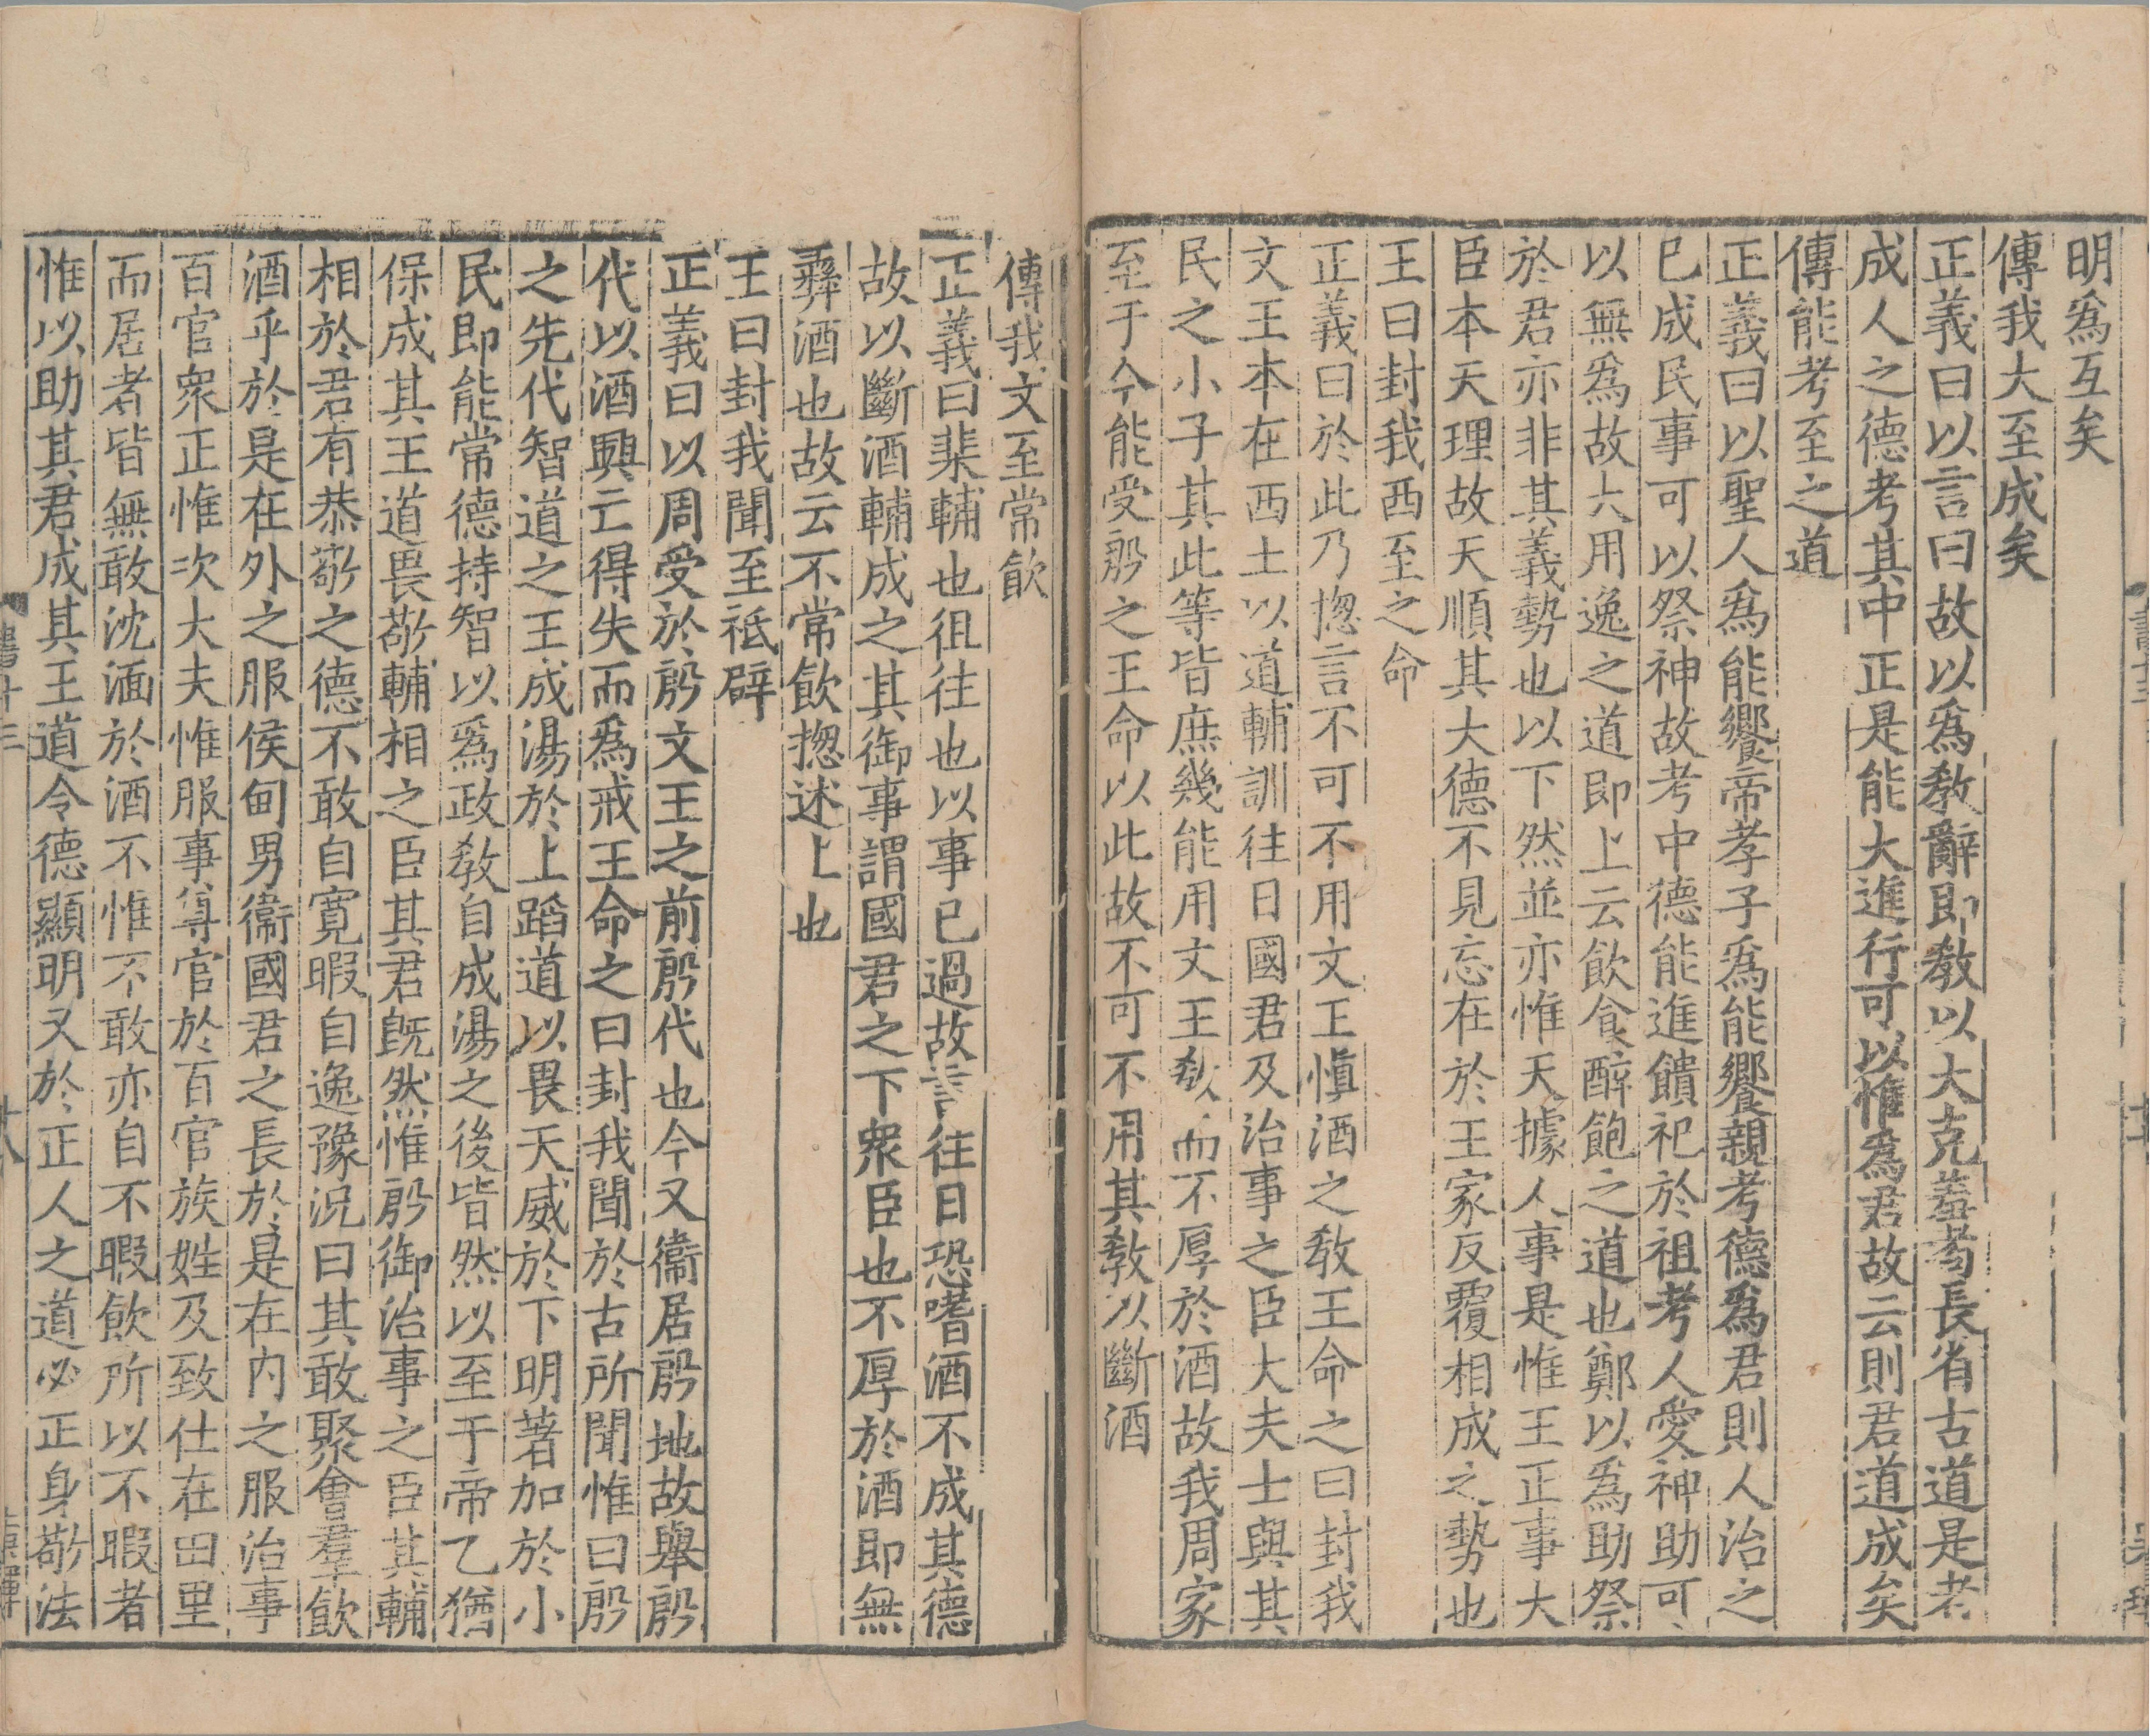 明爲互矣
傳我大至成矣
正義曰以言曰故以爲敎辭即敎以大克羞耇長省古道是老
成人之德考其中正是能大進行可以惟爲君故云則君道成矣
傳能考至之道
正義曰以聖人爲能饗帝孝子爲能饗親考德爲君則人治之
已成民事可以祭神故考中德能進饋祀於祖考人愛神助可
以無爲故大用逸之道即上云飮食醉飽之道也鄭以爲助祭
於君亦非其義勢也以下然並亦惟天據人事是惟王正事大
臣本天理故天順其大德不見忘在於王家反覆相成之勢也
王曰封我西至之命
正義曰於此乃揔言不可不用文王愼酒之敎王命之曰封我
文王本在西土以道輔訓往日國君及治事之臣大夫士與其
民之小子其此等皆庶幾能用文王敎而不厚於酒故我周家
至于今能受殷之王命以此故不可不用其敎以斷酒
傳我文至常飮
正義曰棐輔也徂往也以事已過故言往日恐嗜酒不成其德
故以斷酒輔成之其御事謂國君之下衆臣也不厚於酒即無
彞酒也故云不常飮揔述上也
王曰封我聞至祗辟
正義曰以周受於殷文王之前殷代也今又衞居殷地故舉殷
代以酒興亡得失而爲戒王命之曰封我聞於古所聞惟曰殷
之先代智道之王成湯於上蹈道以畏天威於下明著加於小
民即能常德持智以爲政敎自成湯之後皆然以至于帝乙猶
保成其王道畏敬輔相之臣其君旣然惟殷御治事之臣其輔
相於君有恭敬之德不敢自寛暇自逸豫況曰其敢聚會羣飮
酒乎於是在外之服侯甸男衞國君之長於是在內之服治事
百官衆正惟次大夫惟服事尊官於百官族姓及致仕在田里
而居者皆無敢沈湎於酒不惟不敢亦自不暇飮所以不暇者
惟以助其君成其王道令德顯明又於正人之道必正身敬法
書十三
十八